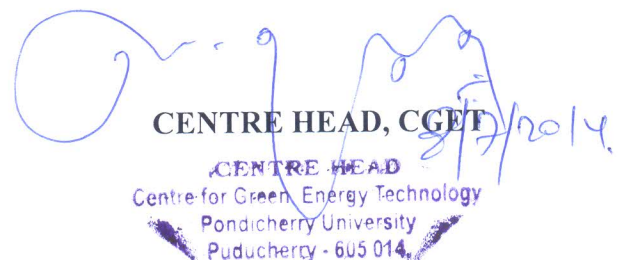 CENTRE HEAD, CGET
8/7/2014.
CENTRE HEAD
Centre for Green Energy Technology
Pondicherry University
Puducherry - 605 014.